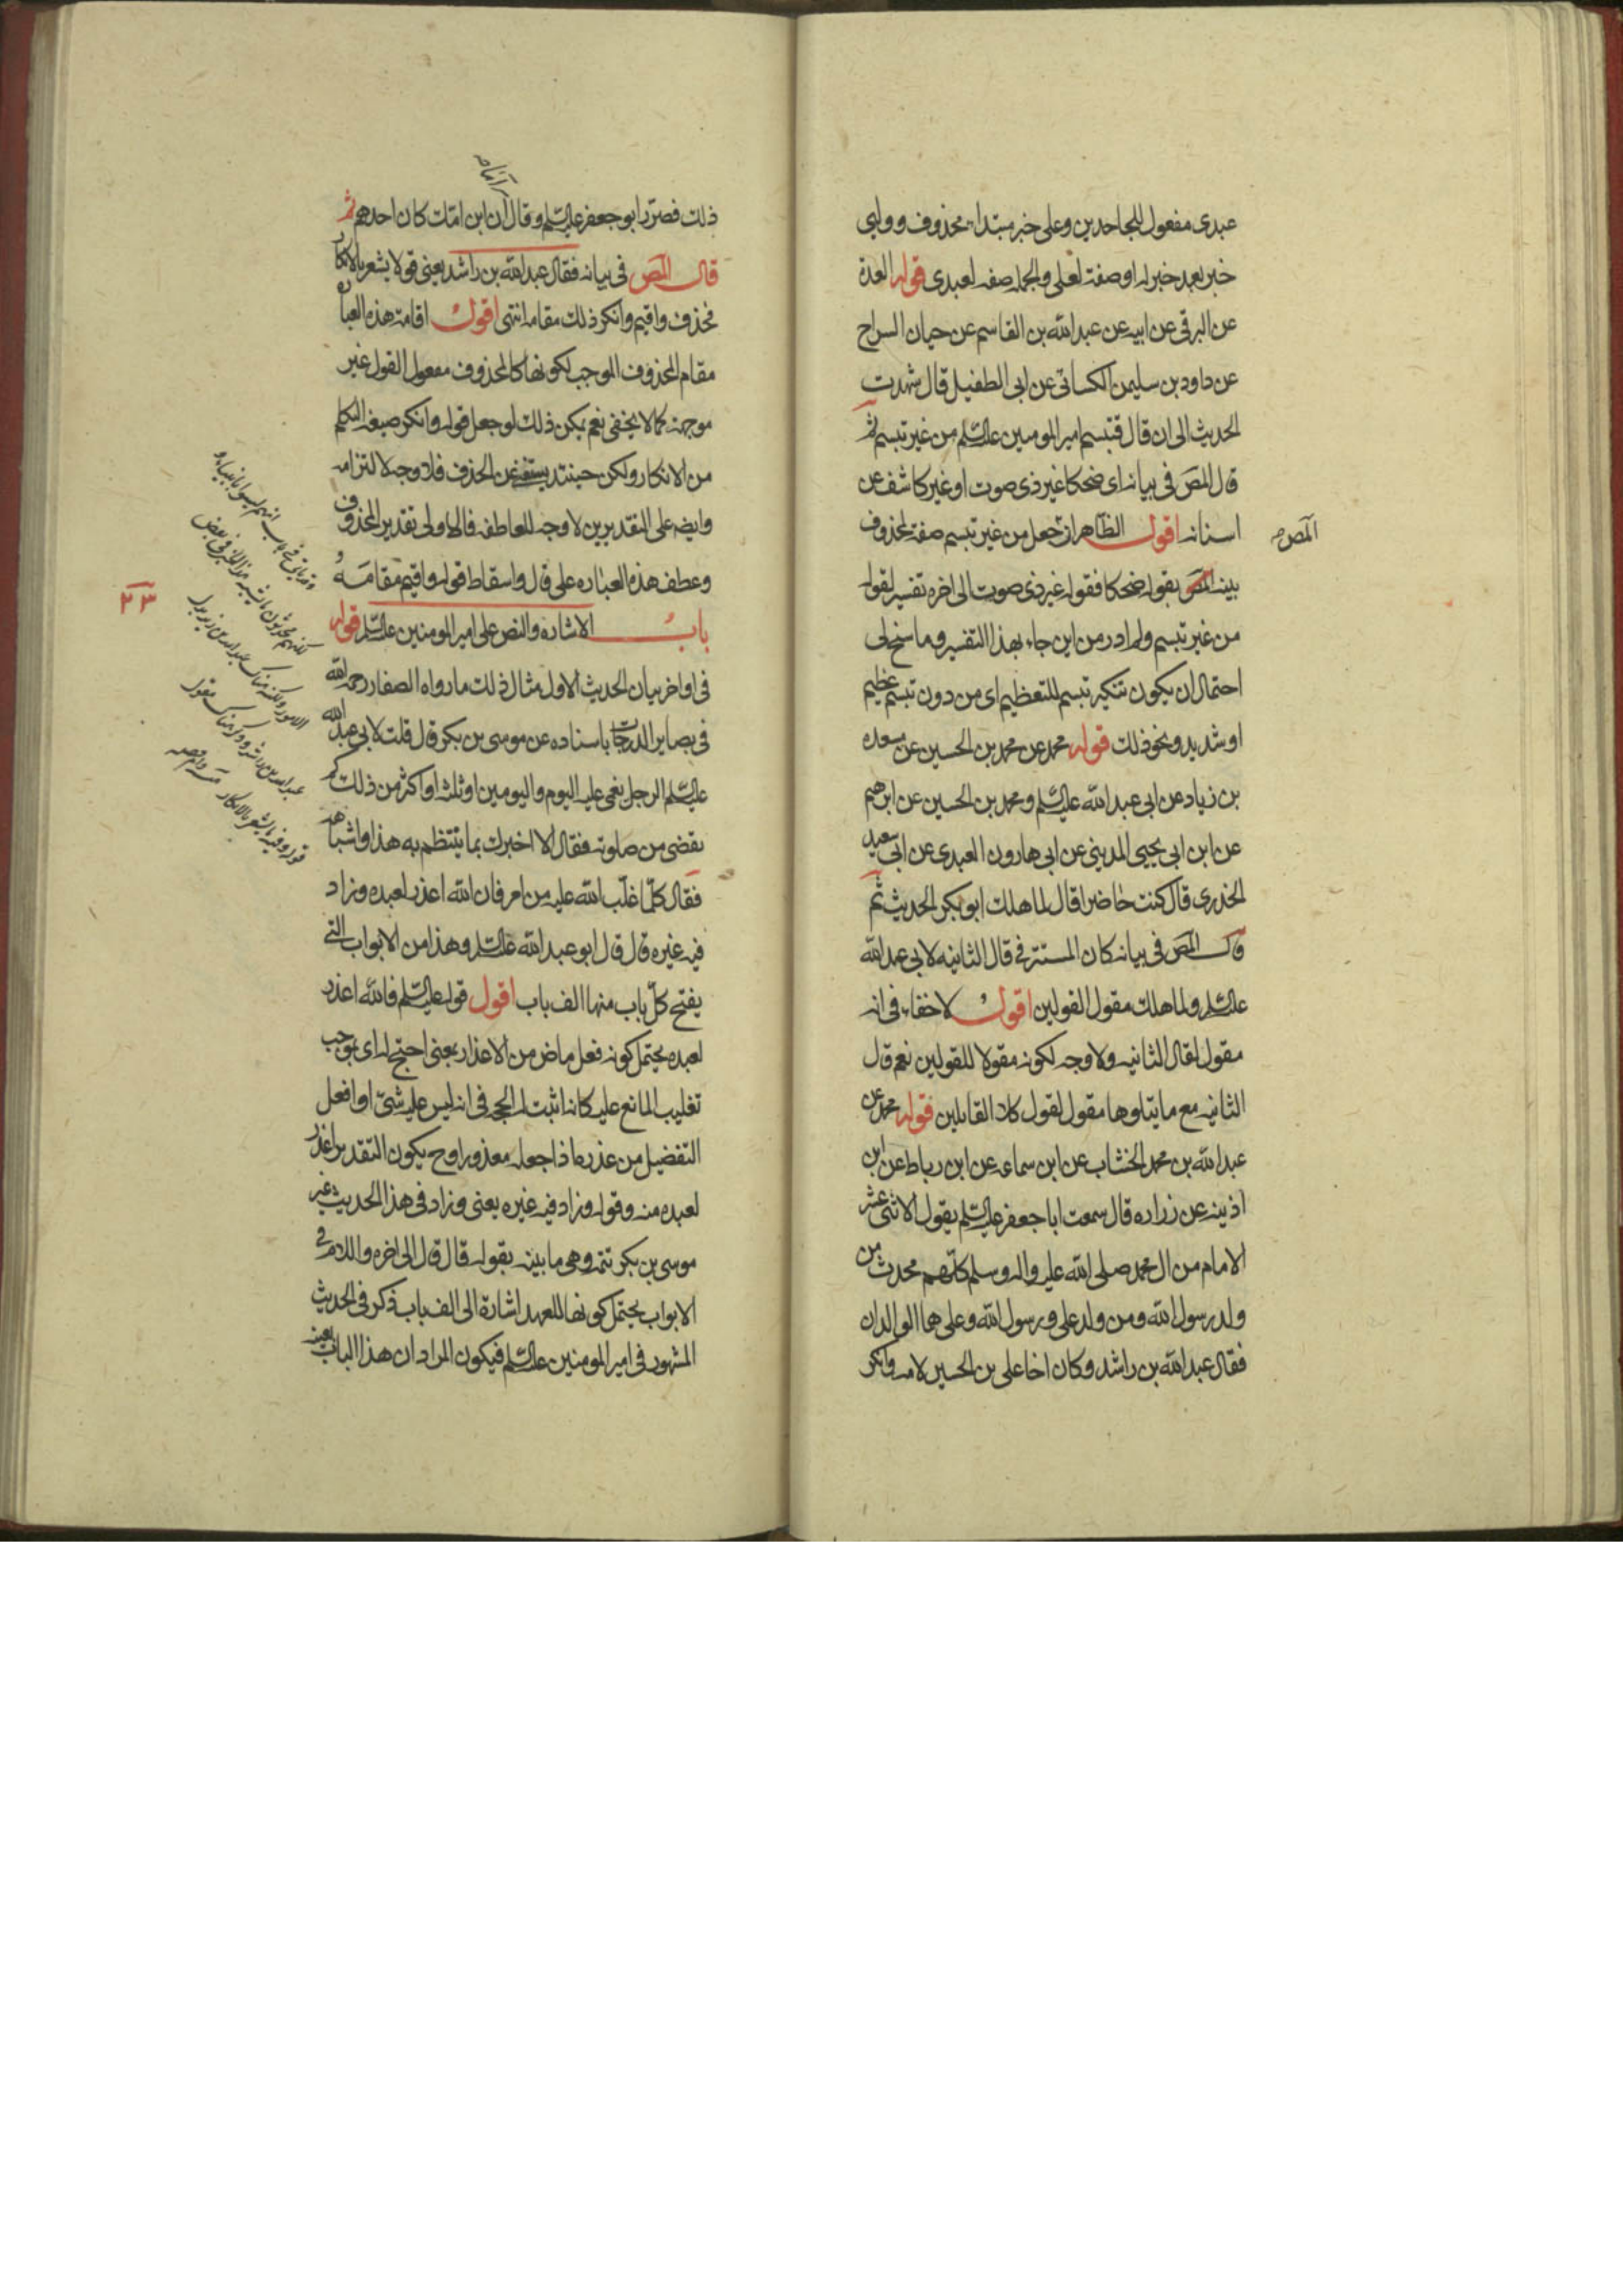 عبدى مفعول للجاحدين وعلى خبر مبتداء محذوف ووليى
خبر بعد خبر له او صفة لعلى والجمله صفه لعبدى قوله العدة
عن البرقى عن ابيه عن عبدالله بن القاسم عن حيان السراج
عن داود بن سليمن الكسائى عن ابى الطفيل قال شهدت
الحديث الى ان قال فتبسم امير المومنين علیه السلم من غير تبسم ثم
قال المص فى بيانه اى ضحكا غير ذى صوت او غير كاشف عن
اسنانه اقول الظاهر انه جعل من غير تبسم صفة لمحذوف
المص م
بينه المص بقوله ضحكا فقوله غير ذى صوت الى اخره تفسير لقوله
من غير تبسم ولم ادر من اين جاء بهذا التفسير وما سنح لى
احتمال ان يكون تنكير تبسم للتعظيم اى من دون تبسم عظيم
او شديد ونحو ذلك قوله محمد عن محمد بن الحسين عن مسعده
بن زياد عن ابى عبدالله علیه السلم ومحمد بن الحسين عن ابرهيم
عن ابن ابى يحيى المدينى عن ابى هارون العبدى عن ابى سعيد
الخدرى قال كنت حاضرا قال لما هلك ابوبكر الحديث ثم
قال المص فى بيانه كان المستتر فى قال الثانيه لابى عبدالله
علیه السلم ولما هلك مقول القولين اقول لا خفاء فى انه
مقول لقال الثانيه ولا وجه لكونه مقولا للقولين نعم قال
الثانيه مع ما يتلوها مقول لقول كلا القايلين قوله محمد عن
عبدالله بن محمد الخشاب عن ابن سماعه عن ابن رباط عن ابن
اذينه عن زراره قال سمعت اباجعفر علیه السلم يقول الاثنى عشر
الامام من ال محمد صلى الله عليه واله وسلم كلهم محدث من
ولد رسول الله ومن ولد على ورسول الله وعلى هما الوالدان
فقال عبدالله بن راشد وكان اخا على بن الحسين لامه وانكر
ذلك فصرر ابوجعفر علیه السلم وقال ان ابن امك كان احدهم ثم
قال المص فى بيانه فقال عبدالله بن راشد يعنى قولا يشعر بالانكار
فحذف واقيم وانكر ذلك مقامه انتهى اقول اقامة هذه العبارة
مقام المحذوف الموجب لكونها كالمحذوف مفعول القول غير
موجهة كما لا يخفى نعم يمكن ذلك لو جعل قوله وانكر صيغه التكلم
من الانكار ولكن حينئذ يستغنى عن الحذف فلا وجه لالتزامه
وايضه على التقديرين لا وجه للعاطف فالاولى تقدير المحذوف
وعطف هذه العباره على قال واسقاط قوله واقيم مقامه
باب الاشاره والنص على امير المومنين علیه السلم قوله
٢٣
فى اواخر بيان الحديث الاول مثال ذلك ما رواه الصفار رحمه الله
فى بصاير الدرجات باسناده عن موسى بن بكر قال قلت لابى عبدالله
علیه السلم الرجل يغمى عليه اليوم واليومين او ثلثه او اكثر من ذلك كم
يقضى من صلوته فقال الا اخبرك بما ينتظم به هذا واشباهه
فقال كلما غلب الله عليه من امر فان الله اعذر لعبده وزاد
فيه غيره قال قال ابوعبدالله علیه السلم وهذا من الابواب التى
يفتح كل باب منها الف باب اقول قوله علیه السلم فالله اعذر
لعبده يحتمل كونه فعل ماض من الاعذار يعنى احتج له اى بموجب
تغليب المانع عليه كانه اثبت له الحجه فى انه ليس عليه شئ او افعل
التفضيل من عذره اذا جعله معذورا وح يكون التقدير اعذر
لعبده منه وقوله وزاد فيه غيره يعنى وزاد فى هذا الحديث غير
موسى بن بكر تتمه وهى ما بينه بقوله قال قال الى اخره واللام فى
الابواب يحتمل كونها للعهد اشارة الى الف باب ذكر فى الحديث
المشهور فى امير المومنين علیه السلم فيكون المراد ان هذا الباب بعينه